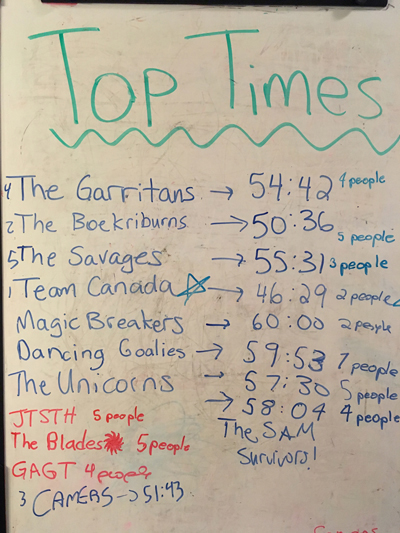 Top Times
4 The Garritans → 54:42 4 people
2 The Boekriburns → 50:36 5 people
5 The Savages → 55:31 3 people
1 Team Canada ☆ → 46:29 2 people
Magic Breakers → 60:00 2 people
Dancing Goalies → 59:53 7 people
The Unicorns → 57:30 5 people
→ 58:04 4 people
The SAM
Survivors!
JTSTH 5 people
The Blades 5 people
GAGT 4 people
3 CAMERS → 51:43